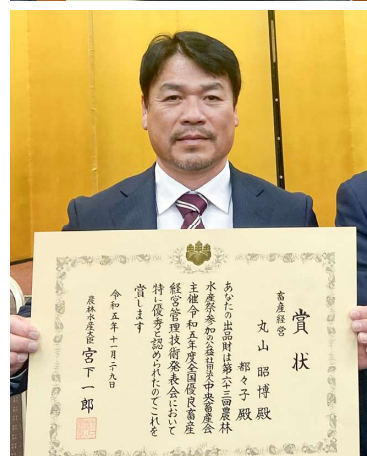 賞状
畜産経営
丸山昭博殿
都々子殿
あなたの出品財は第六十三回農林
水産祭参加の公益社団法人中央畜産会
主催令和五年度全国優良畜産
経営管理技術発表会において
特に優秀と認められたのでこれを
賞します
令和五年十一月二十九日
農林水産大臣 宮下一郎